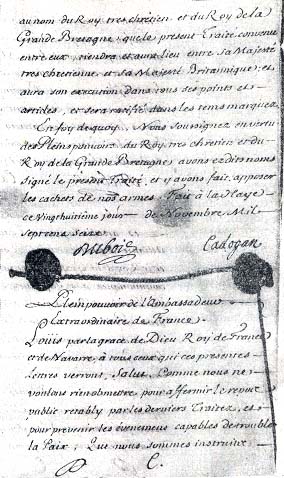 au nom du Roy tres chrétien et du Roy de la
Grande Bretagne, que le present Traité convenu
entre eux, tiendra et aura lieu entre Sa Majesté
tres chretienne et Sa Majesté Britannique, et
aura son execution dans tous ses points et
articles, et sera ratifié dans les tems marquez
En foy de quoy, Nous Soussignez en vertu
des Pleinpouvoirs du Roy tres chretien et du
Roy de la Grande Bretagne, avons esdits noms
signé le present Traité, et y avons fait apposer
les cachets de nos armes. Fait à la Haye
ce Vingthuitiéme jour de Novembre Mil
septcens seize
Dubois Cadogan
Pleinpouvoir de l'Ambassadeur
Extraordinaire de France
Loüis par la grace de Dieu Roy de France
et de Navarre, à tous ceux qui ces presentes
lettres verront, Salut. Comme nous ne
voulons rien obmettre pour affermir le repos
public retably par les derniers Traitez, et
pour prevenir les évenemens capables de troubler
la Paix, Que nous sommes instruits
D C.